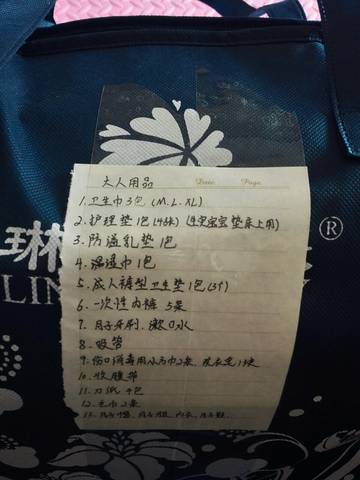 大人用品
Date: Page:
1. 卫生巾 3包 (M. L. XL)
2. 护理垫1包(46抹)(宝宝垫床上用)
3. 防溢乳垫1包
4. 湿巾1包
5. 成人裤型卫生垫1包(3个)
6. 一次性内裤 5条
7. 月子牙刷. 漱口水
8. 吸管
9. 伤口消毒用小方巾2条
10. 收腹带
11. 刀纸 4包
12. 毛巾2条
13. 月子帽. 月子服. 内衣. 月子鞋.
琳
®
LIN